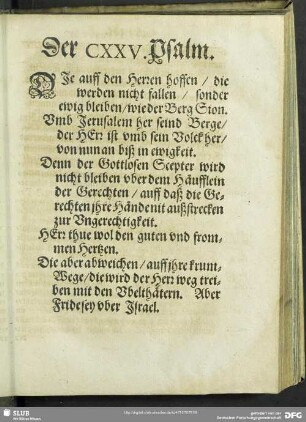 Der CXXV. Psalm.
DJe auff den Herren hoffen / die
werden nicht fallen / sonder
ewig bleiben / wie der Berg Sion.
Vmb Jerusalem her seind Berge /
der HErr ist vmb sein Volck her /
von nun an biß in ewigkeit.
Denn der Gottlosen Scepter wird
nicht bleiben vber dem Häufflein
der Gerechten / auff daß die Ge-
rechten jhre Hände nit außstrecken
zur Vngerechtigkeit.
HErr thue wol den guten vnd from-
men Hertzen.
Die aber abweichen / auff jhre krum̃e
Wege / die wird der Herr weg trei-
ben mit den Vbelthätern. Aber
Fride sey vber Jsrael.
SLUB
Wir führen Wissen.
DFG